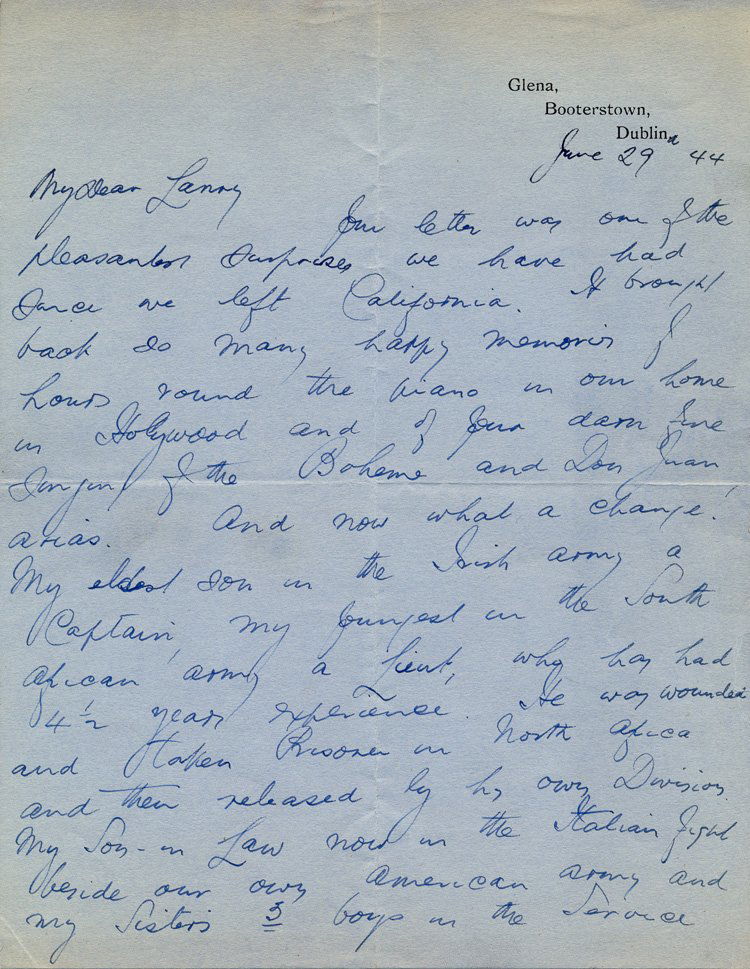 Glena,
Booterstown,
Dublin
June 29 44
My Dear Lanny
Your letter was one of the
pleasantest surprises we have had
since we left California. It brought
back so many happy memories of
hours round the piano in our home
in Hollywood and of your darn fine
singing of the Boheme and Don Juan
arias. And now what a change!
My eldest son in the Irish army a
Captain, my youngest in the South
African army a Lieut, who has had
4½ years experience. He was wounded
and taken Prisoner in North Africa
and then released by his own Division
My Son-in Law now in the Italian fight
beside our own American army and
my Sisters 3 boys in the Service